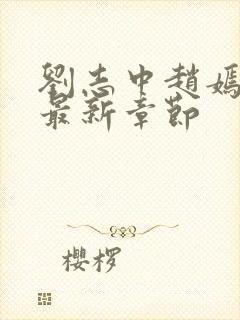 劉志中趙嫣
最新章節
櫻桜